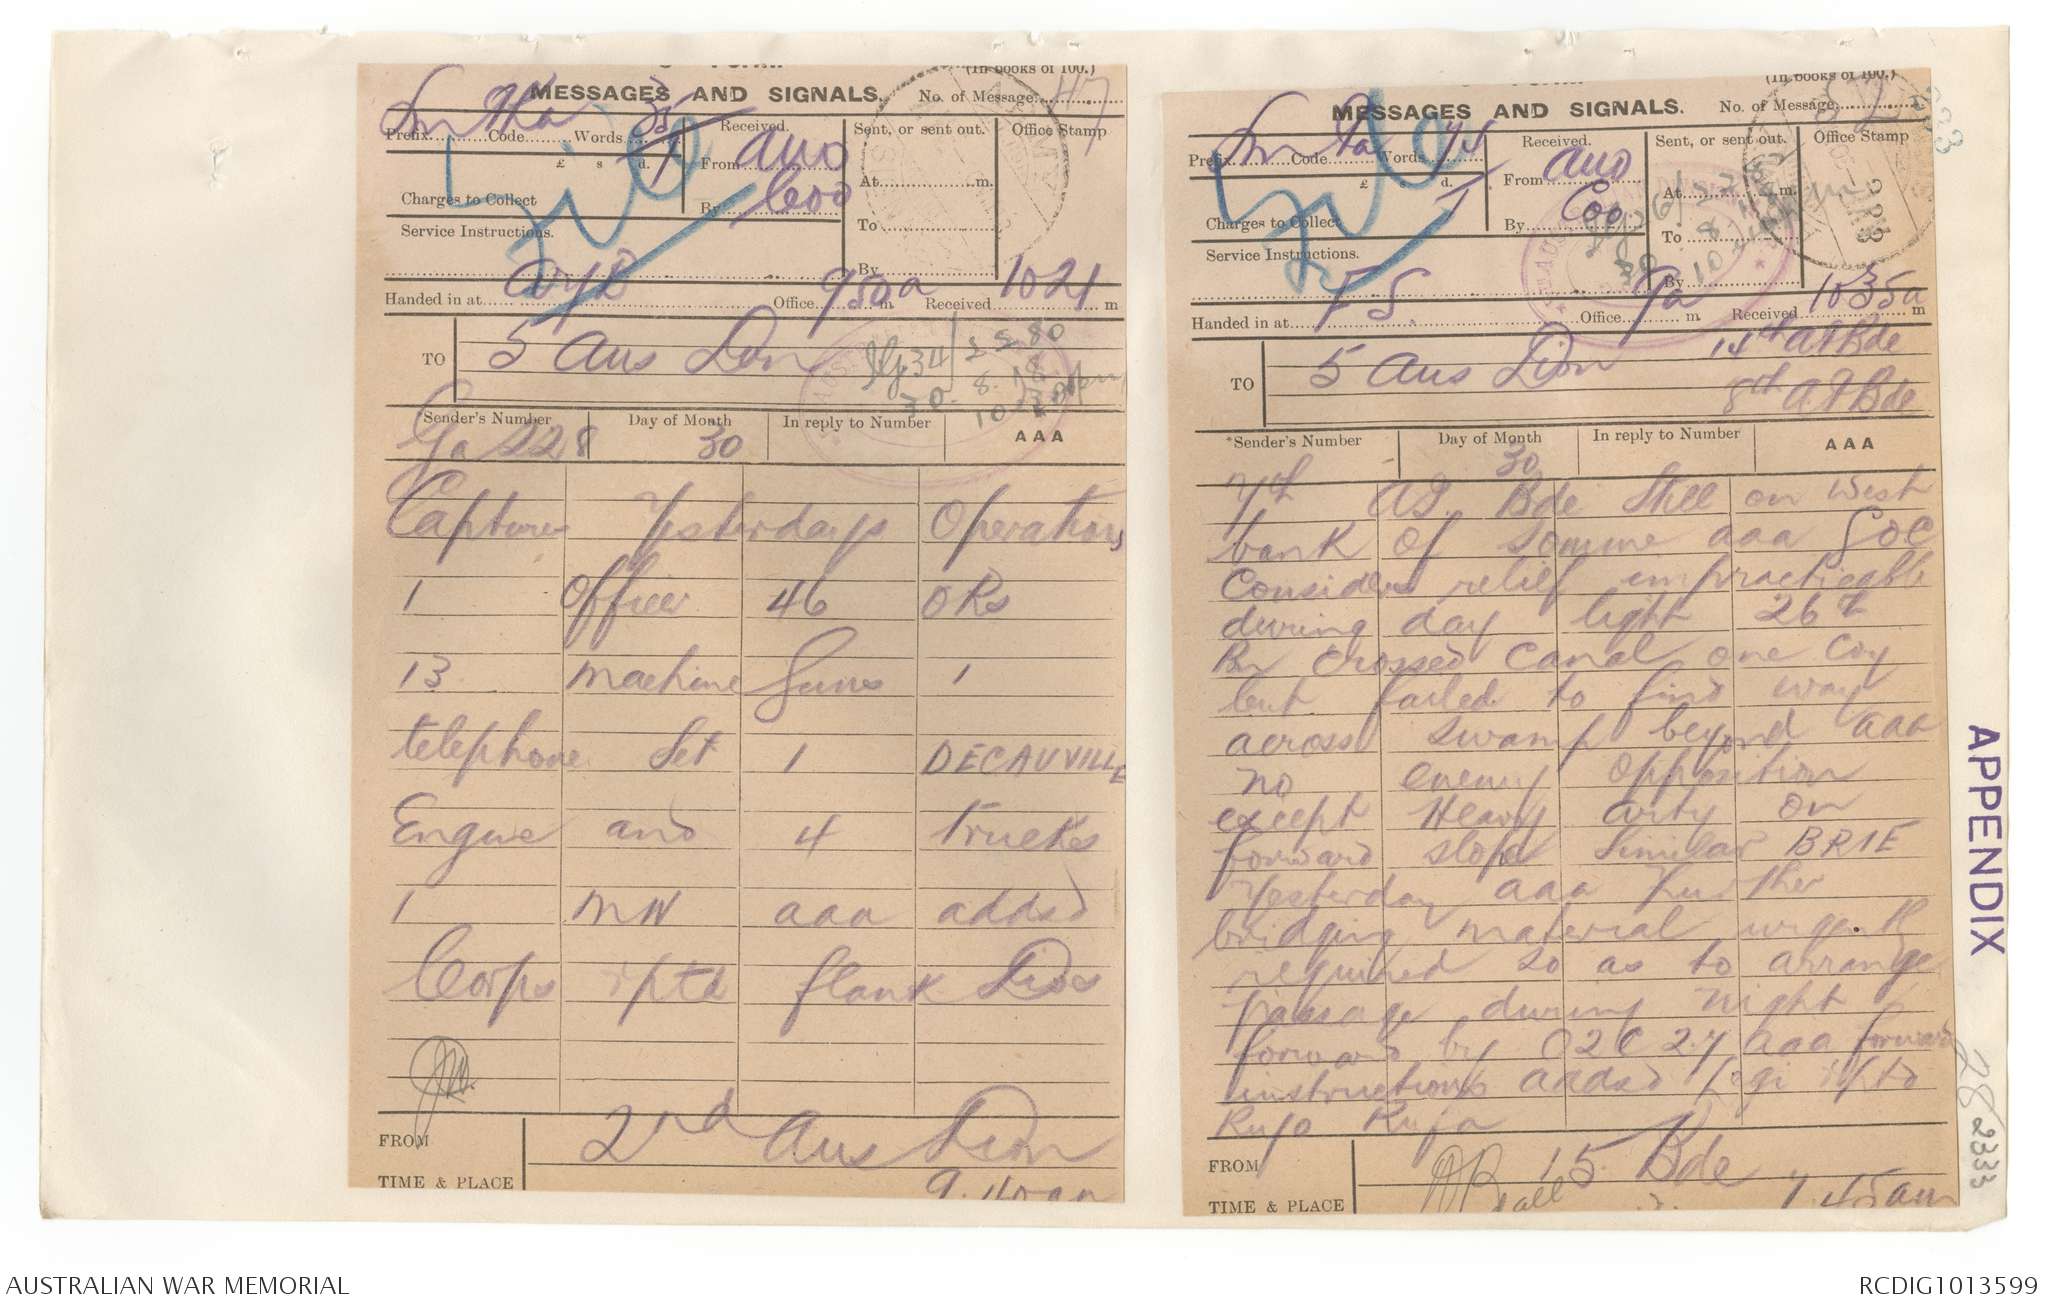 (In books of 100.)
MESSAGES AND SIGNALS. No. of Message 117
Prefix Sm Code Words 35
Received.
From AUO
By Coo
Sent, or sent out.
At m.
To
By
Office Stamp
£ s d.
Charges to Collect
Service Instructions.
Handed in at Office 950a m. Received 1021 m
TO 5 Aus Divn
Sender's Number Ga 228
Day of Month 30
In reply to Number
AAA
Captures Yesterdays Operations
1 Officer 46 ORs
13 machine Guns 1
telephone Set 1 DECAUVILLE
Engine and 4 trucks
1 MW aaa addsd
Corps rptd flank Divs
FROM 2nd Aus Divn
TIME & PLACE 9.40am
(In books of 100.)
MESSAGES AND SIGNALS. No. of Message
Prefix Sm Code Words 74
Received.
From AUO
By Coo
Sent, or sent out.
At m.
To
By
Office Stamp
£ s. d.
Charges to Collect
Service Instructions.
Handed in at FS. Office 9a m. Received 1035a m
TO 5 Aus Divn 14th AIBde
8th AIBde
*Sender's Number
Day of Month 30
In reply to Number
AAA
7th AI. Bde Still on West
bank of Somme aaa GOC
Considers relief impracticable
during day light 26th
Bn crossed Canal one Coy
but failed to find way
across swamp beyond aaa
no enemy opposition
except Heavy arty on
forward slope similar BRIE
Yesterday aaa Further
bridging material urgently
required so as to arrange
passage during night
forward by O2C 2.7 aaa forward
instructions addsd rptd
FROM 15 Bde
TIME & PLACE 7.45am
APPENDIX
28
2333
AUSTRALIAN WAR MEMORIAL
RCDIG1013599